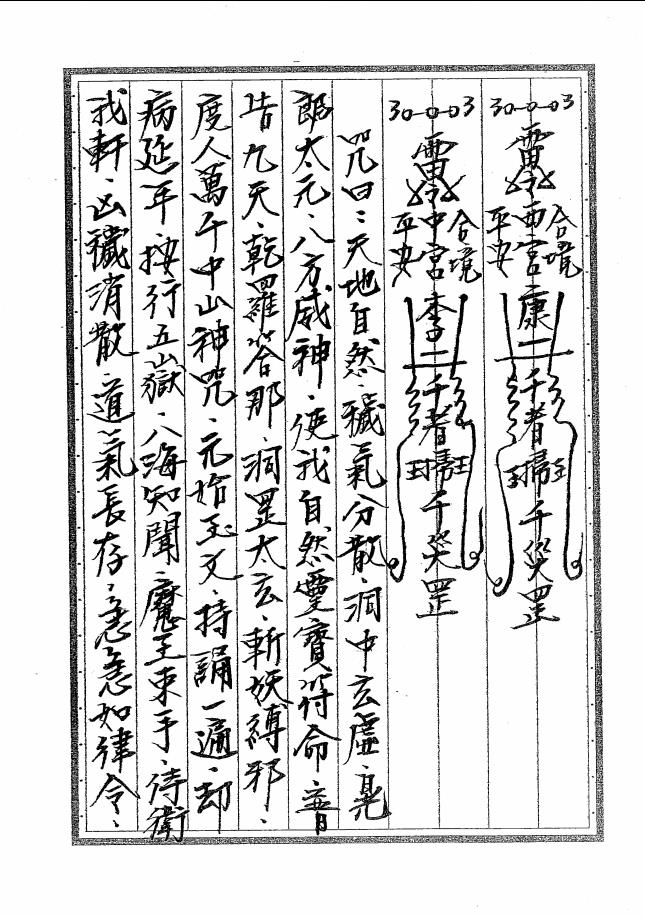 合境
平安
西宮康
千者
掃
千災罡
合境
平安
中宮李
千者
掃
千災罡
咒曰：天地自然、穢氣分散、洞中玄虛、晃
郎太元、八方威神、使我自然、靈寶符命、普
告九天、乾羅答那、洞罡太玄、斬妖縛邪、
度人萬千中山神咒、元始玉文、持誦一遍、却
病延年、按行五嶽、八海知聞、魔王束手、侍衛
我軒、凶穢消散、道氣長存、急急如律令、